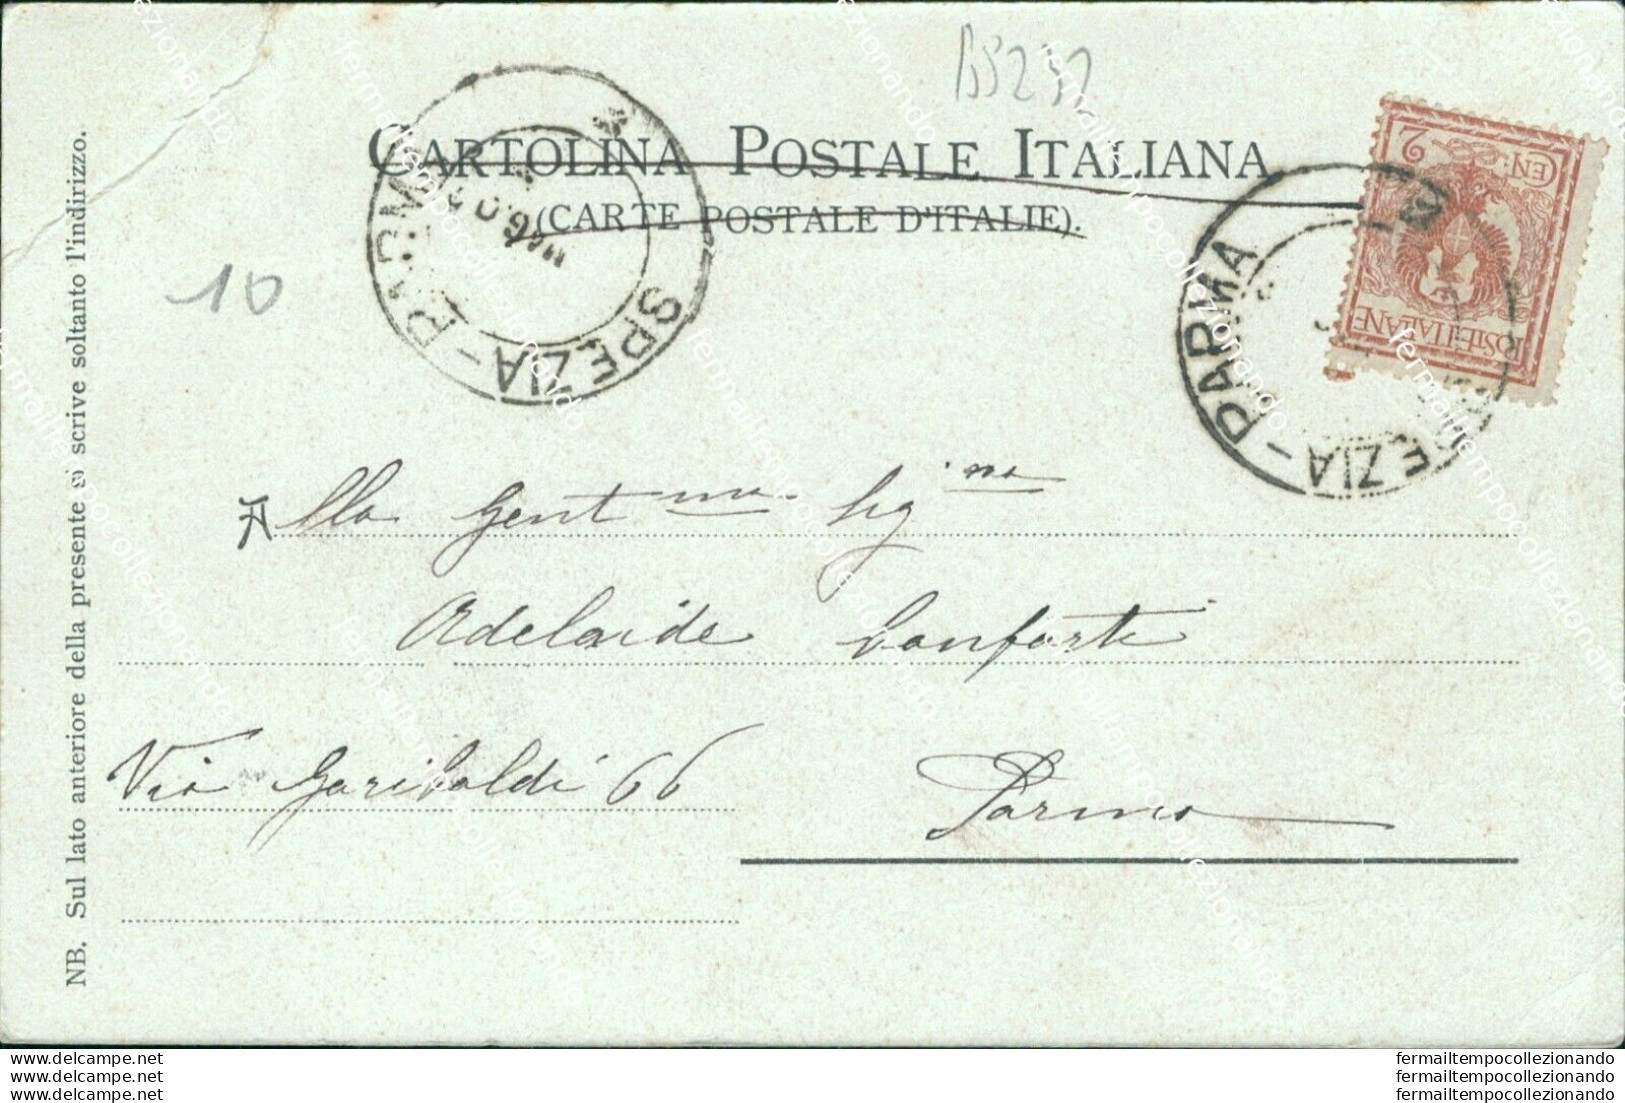 B5292
CARTOLINA POSTALE ITALIANA
(CARTE POSTALE D'ITALIE).
SPEZIA - PARMA
PARMA
EZIA
CEN: 2
POSTE ITALIANE
10
Alla Gent ma Sig na
Adelaide Conforti
Via Garibaldi 66
Parma
NB. Sul lato anteriore della presente si scrive soltanto l'indirizzo.
www.delcampe.net
www.delcampe.net
www.delcampe.net
fermailtempocollezionando
fermailtempocollezionando
fermailtempocollezionando